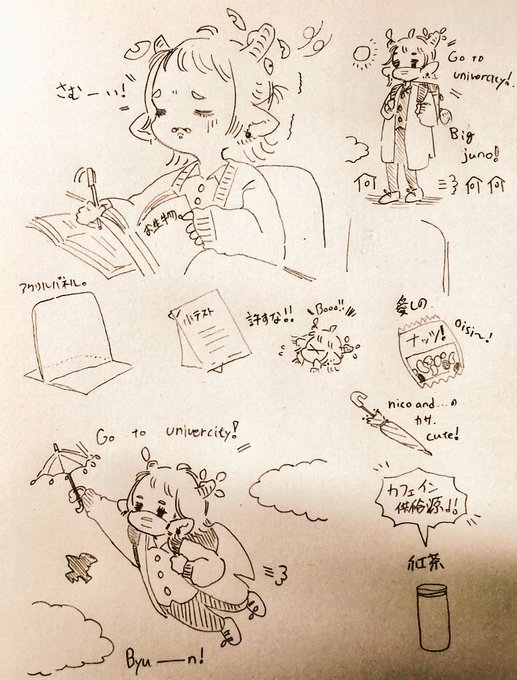 さむーい!
Go to
univercity!
Big
juno!
お生物。
アクリルパネル。
小テスト
許すな!!
Booo!!
愛しの
ナッツ!
Oisi~!
nico and...の
カサ.
cute!
Go to univercity!
カフェイン
供給源♩!
紅茶
Byu—n!